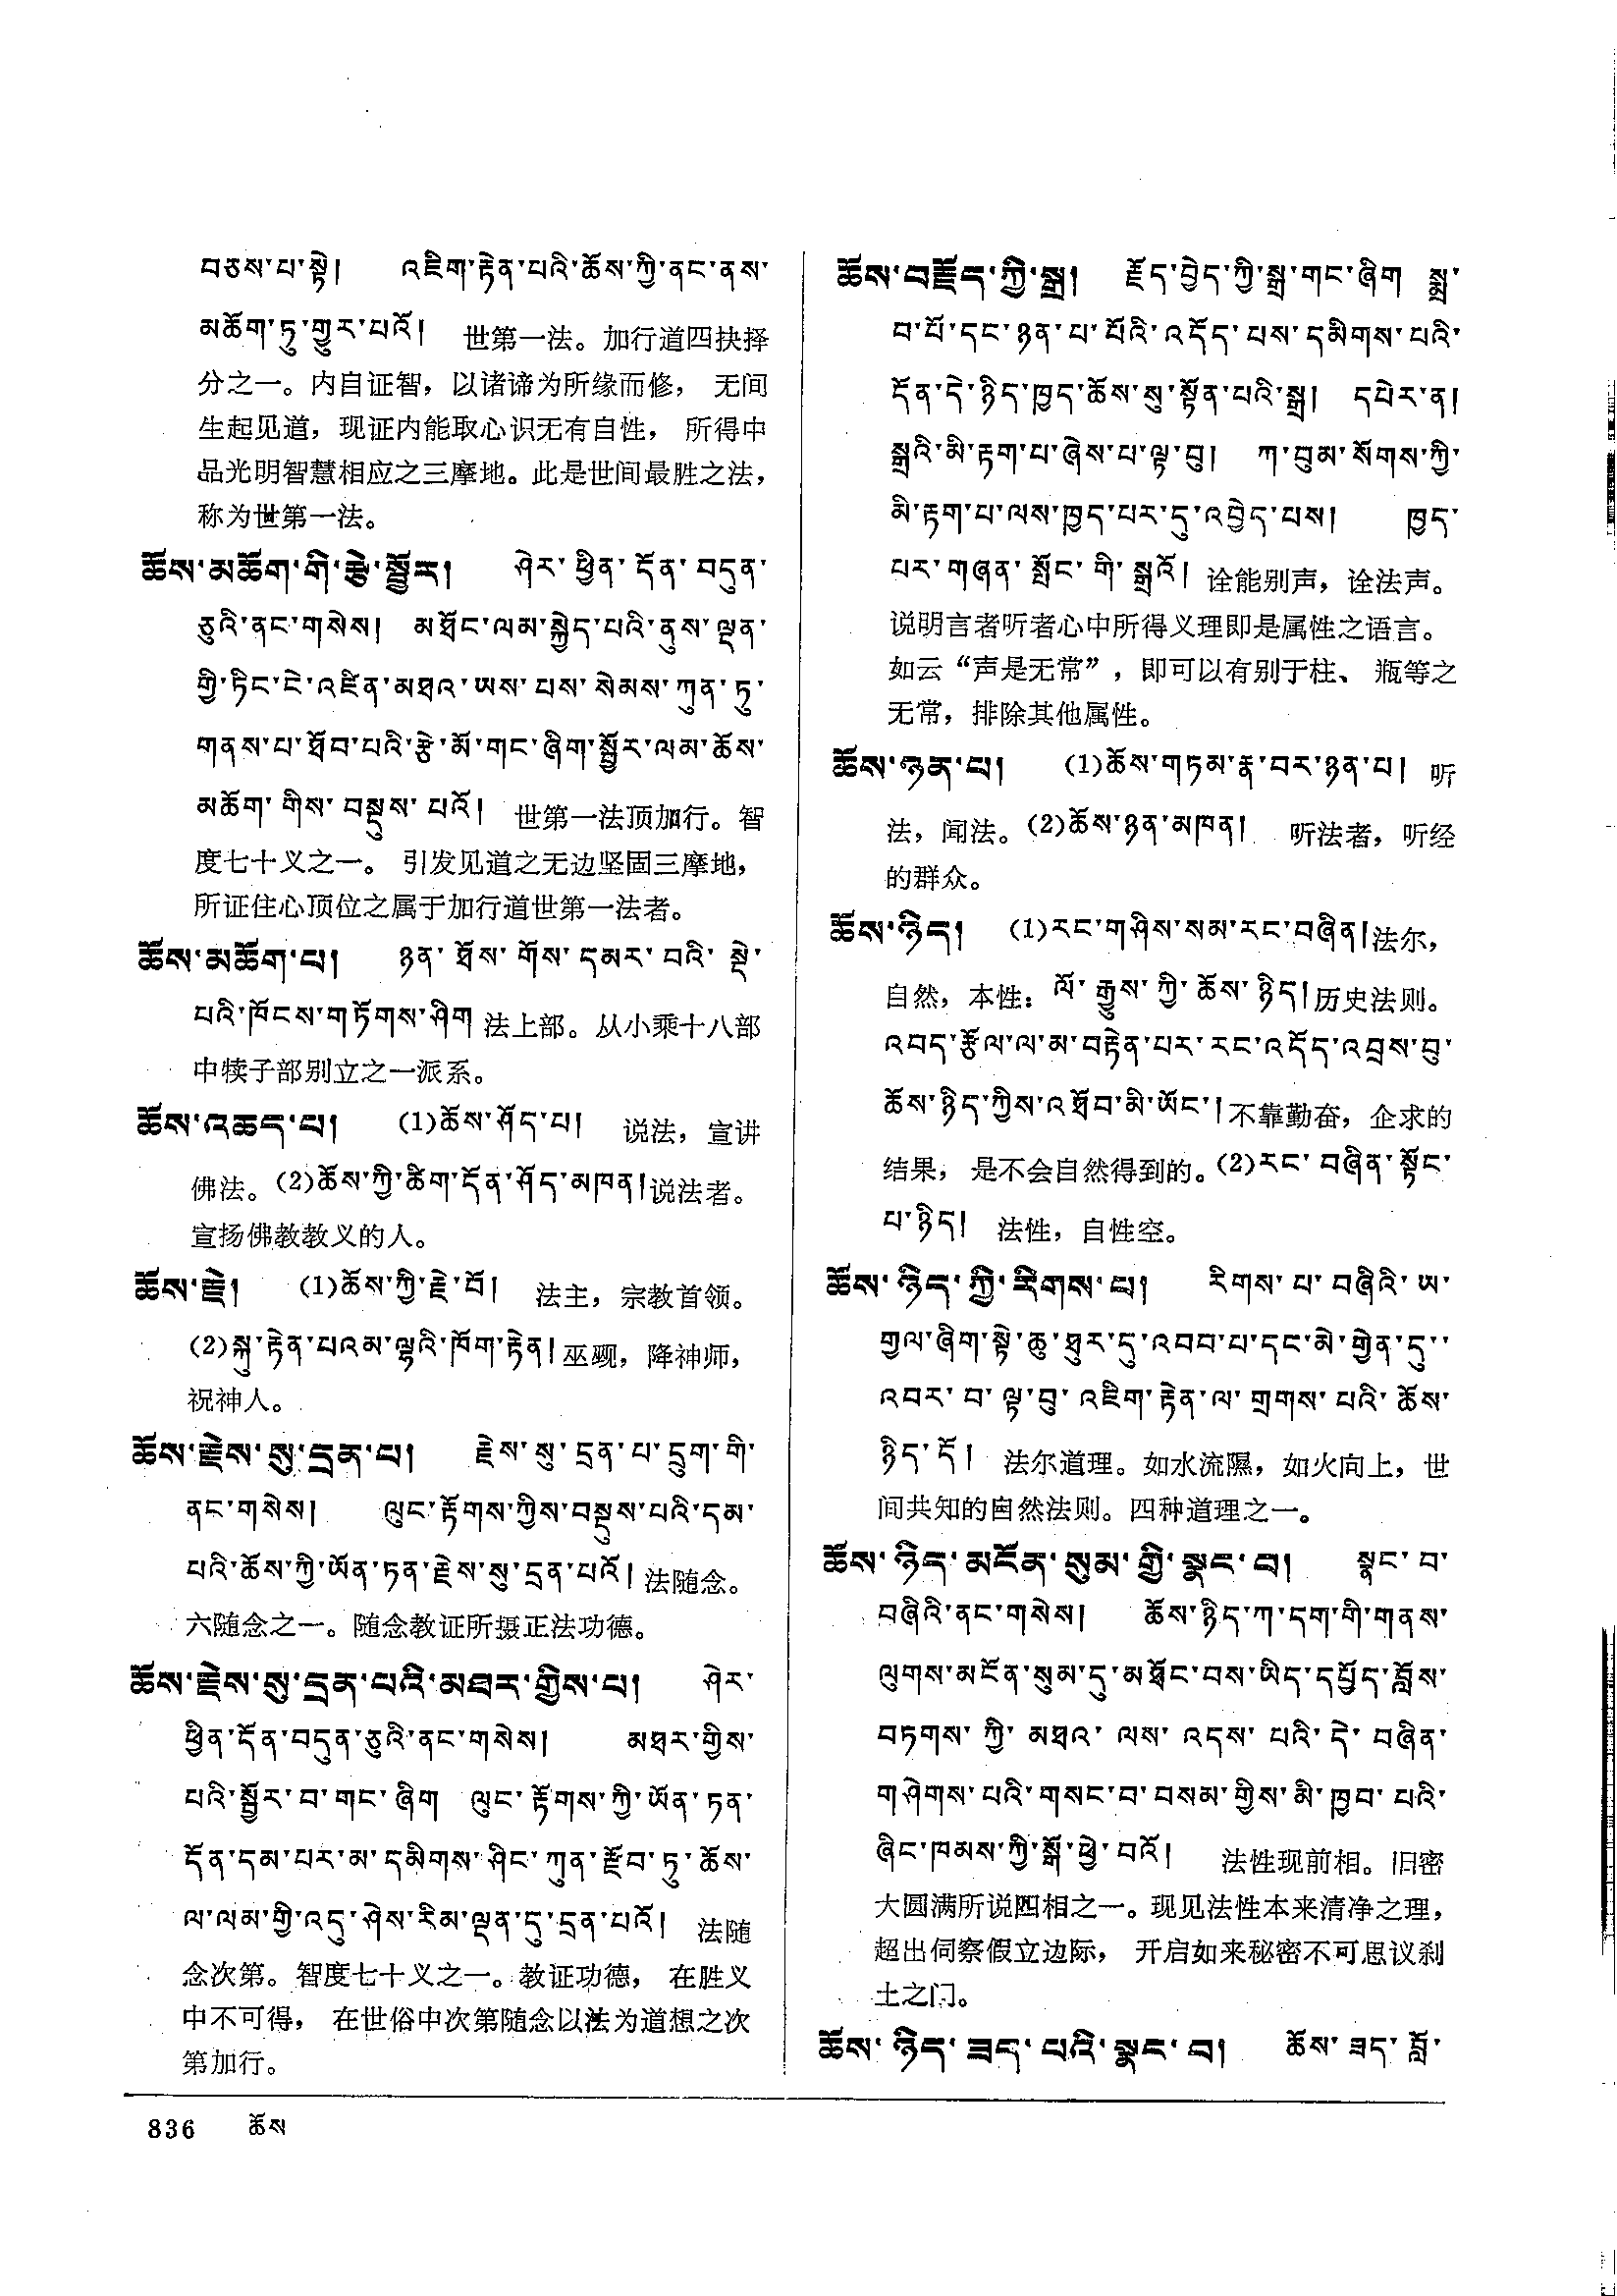 བཅས་པ་སྟེ།   འཇིག་རྟེན་པའི་ཆོས་ཀྱི་ནང་ནས་
མཆོག་ཏུ་གྱུར་པའོ།  世第一法。加行道四抉择
分之一。内自证智，以诸谛为所缘而修， 无间
生起见道，现证内能取心识无有自性， 所得中
品光明智慧相应之三摩地。此是世间最胜之法，
称为世第一法。
ཆོས་མཆོག་གི་རྩེ་སྦྱོར།   ཤེར་ཕྱིན་དོན་བདུན་
ཅུའི་ནང་གསེས།  མཐོང་ལམ་སྐྱེད་པའི་ནུས་ལྡན་
གྱི་ཏིང་ངེ་འཛིན་མཐའ་ཡས་པས་སེམས་ཀུན་ཏུ་
གནས་པ་ཐོབ་པའི་རྩེ་མོ་གང་ཞིག་སྦྱོར་ལམ་ཆོས་
མཆོག་གིས་བསྡུས་པའོ།  世第一法顶加行。智
度七十义之一。 引发见道之无边坚固三摩地，
所证住心顶位之属于加行道世第一法者。
ཆོས་མཆོག་པ།   ཉན་ཐོས་གོས་དམར་བའི་སྡེ་
པའི་ཁོངས་གཏོགས་ཤིག 法上部。从小乘十八部
中犊子部别立之一派系。
ཆོས་འཆད་པ།   (1)ཆོས་ཤོད་པ།  说法，宣讲
佛法。(2)ཆོས་ཀྱི་ཚིག་དོན་ཤོད་མཁན།说法者。
宣扬佛教教义的人。
ཆོས་རྗེ།   (1)ཆོས་ཀྱི་རྗེ་བོ།  法主，宗教首领。
(2)སྐུ་རྟེན་པའམ་ལྷའི་ཁོག་རྟེན།巫觋，降神师，
祝神人。
ཆོས་རྗེས་སུ་དྲན་པ།   རྗེས་སུ་དྲན་པ་དྲུག་གི་
ནང་གསེས།   ལུང་རྟོགས་ཀྱིས་བསྡུས་པའི་དམ་
པའི་ཆོས་ཀྱི་ཡོན་ཏན་རྗེས་སུ་དྲན་པའོ།法随念。
六随念之一。随念教证所摄正法功德。
ཆོས་རྗེས་སུ་དྲན་པའི་མཐར་གྱིས་པ།   ཤེར་
ཕྱིན་དོན་བདུན་ཅུའི་ནང་གསེས།   མཐར་གྱིས་
པའི་སྦྱོར་བ་གང་ཞིག  ལུང་རྟོགས་ཀྱི་ཡོན་ཏན་
དོན་དམ་པར་མ་དམིགས་ཤིང་ཀུན་རྫོབ་ཏུ་ཆོས་
ལ་ལམ་གྱི་འདུ་ཤེས་རིམ་ལྡན་དུ་དྲན་པའོ།  法随
念次第。智度七十义之一。教证功德， 在胜义
中不可得， 在世俗中次第随念以法为道想之次
第加行。
ཆོས་བརྗོད་ཀྱི་སྒྲ།   རྗོད་བྱེད་ཀྱི་སྒྲ་གང་ཞིག  སྨྲ་
བ་པོ་དང་ཉན་པ་པོའི་འདོད་པས་དམིགས་པའི་
དོན་དེ་ཉིད་ཁྱད་ཆོས་སུ་སྟོན་པའི་སྒྲ།  དཔེར་ན།
སྒྲའི་མི་རྟག་པ་ཞེས་པ་ལྟ་བུ།  ཀ་བུམ་སོགས་ཀྱི་
མི་རྟག་པ་ལས་ཁྱད་པར་དུ་འབྱེད་པས།   ཁྱད་
པར་གཞན་སྤོང་གི་སྒྲའོ།诠能别声，诠法声。
说明言者听者心中所得义理即是属性之语言。
如云“声是无常”，即可以有别于柱、 瓶等之
无常，排除其他属性。
ཆོས་ཉན་པ།   (1)ཆོས་གཏམ་རྣ་བར་ཉན་པ།  听
法，闻法。(2)ཆོས་ཉན་མཁན།  听法者，听经
的群众。
ཆོས་ཉིད།   (1)རང་གཤིས་སམ་རང་བཞིན།法尔，
自然，本性：ལོ་རྒྱུས་ཀྱི་ཆོས་ཉིད།历史法则。
འབད་རྩོལ་ལ་མ་བརྟེན་པར་རང་འདོད་འབྲས་བུ་
ཆོས་ཉིད་ཀྱིས་འཐོབ་མི་ཡོང་།不靠勤奋，企求的
结果， 是不会自然得到的。(2)རང་བཞིན་སྟོང་
པ་ཉིད།  法性，自性空。
ཆོས་ཉིད་ཀྱི་རིགས་པ།   རིགས་པ་བཞིའི་ཡ་
གྱལ་ཞིག་སྟེ་ཆུ་ཐུར་དུ་འབབ་པ་དང་མེ་གྱེན་དུ་་
འབར་བ་ལྟ་བུ་འཇིག་རྟེན་ལ་གྲགས་པའི་ཆོས་
ཉིད་དོ།  法尔道理。如水流隰，如火向上，世
间共知的自然法则。四种道理之一。
ཆོས་ཉིད་མངོན་སུམ་གྱི་སྣང་བ།   སྣང་བ་
བཞིའི་ནང་གསེས།   ཆོས་ཉིད་ཀ་དག་གི་གནས་
ལུགས་མངོན་སུམ་དུ་མཐོང་བས་ཡིད་དཔྱོད་བློས་
བཏགས་ཀྱི་མཐའ་ལས་འདས་པའི་དེ་བཞིན་
གཤེགས་པའི་གསང་བ་བསམ་གྱིས་མི་ཁྱབ་པའི་
ཞིང་ཁམས་ཀྱི་སྒོ་ཕྱེ་བའོ།   法性现前相。旧密
大圆满所说四相之一。现见法性本来清净之理，
超出伺察假立边际， 开启如来秘密不可思议刹
土之门。
ཆོས་ཉིད་ཟད་པའི་སྣང་བ།   ཆོས་ཟད་བློ་
836   ཆོས